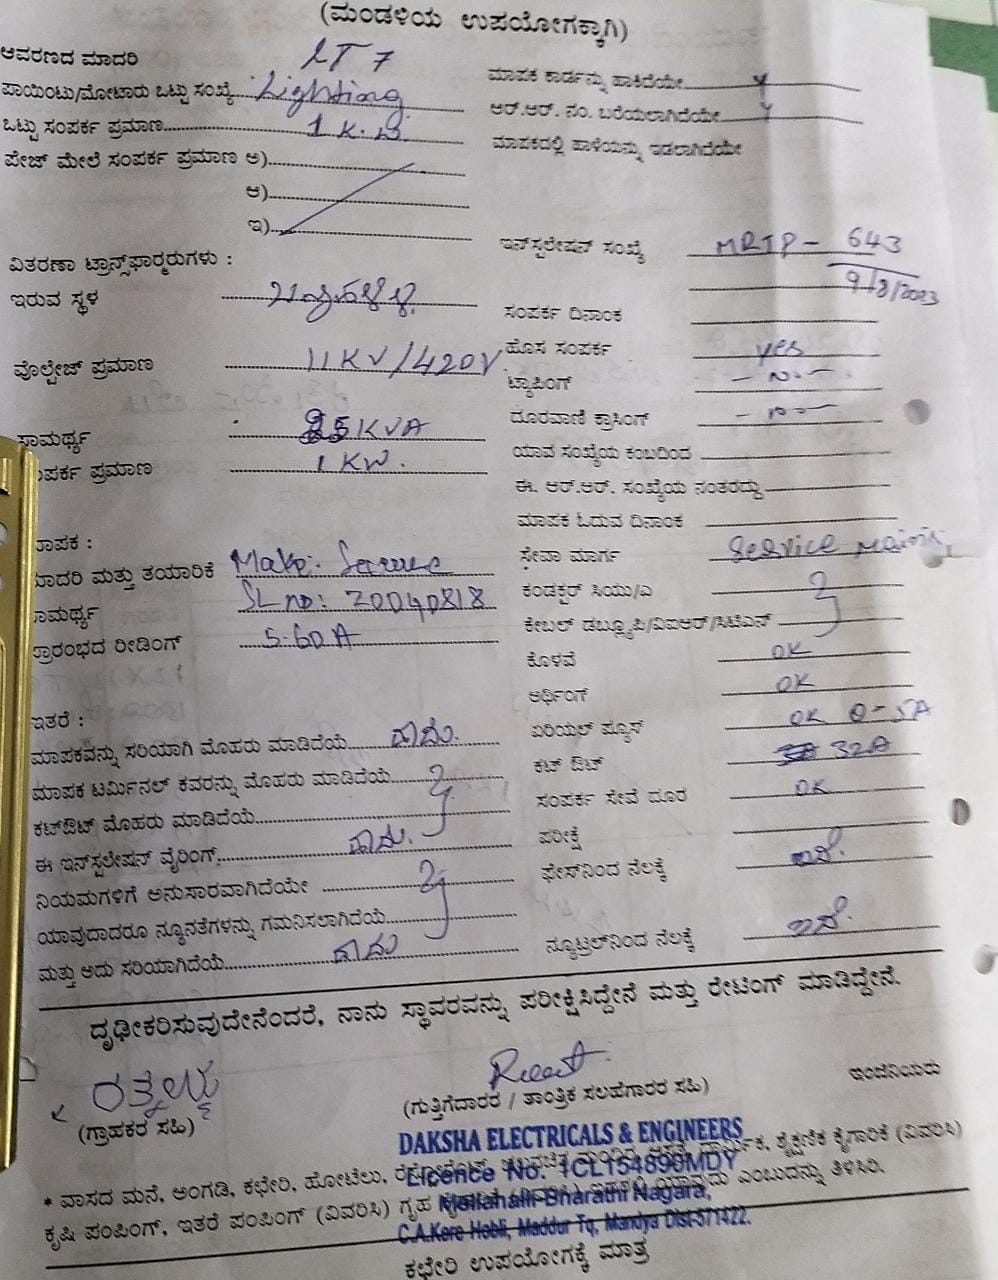 (ಮಂಡಳಿಯ ಉಪಯೋಗಕ್ಕಾಗಿ)
ಆವರಣದ ಮಾದರಿ LT 7
ಪಾಯಿಂಟು/ಮೋಟಾರು ಒಟ್ಟು ಸಂಖ್ಯೆ Lighting
ಒಟ್ಟು ಸಂಪರ್ಕ ಪ್ರಮಾಣ 1 K.W
ಪೇಜ್ ಮೇಲೆ ಸಂಪರ್ಕ ಪ್ರಮಾಣ ಅ)
ಆ)
ಇ)
ವಿತರಣಾ ಟ್ರಾನ್ಸ್‌ಫಾರ್ಮರುಗಳು :
ಇರುವ ಸ್ಥಳ
ವೊಲ್ಟೇಜ್ ಪ್ರಮಾಣ 11KV/420V
ಸಾಮರ್ಥ್ಯ 25KVA
ಪರ್ಕ ಪ್ರಮಾಣ 1 KW.
ಾಪಕ :
ಾದರಿ ಮತ್ತು ತಯಾರಿಕೆ Make: Secure
ಾಮರ್ಥ್ಯ SL no: 20040818
ಪ್ರಾರಂಭದ ರೀಡಿಂಗ್ 5-60A
ಇತರೆ :
ಮಾಪಕವನ್ನು ಸರಿಯಾಗಿ ಮೊಹರು ಮಾಡಿದೆಯೆ ಹೌದು.
ಮಾಪಕ ಟರ್ಮಿನಲ್ ಕವರನ್ನು ಮೊಹರು ಮಾಡಿದೆಯೆ
ಕಟ್‌ಔಟ್ ಮೊಹರು ಮಾಡಿದೆಯೆ
ಈ ಇನ್‌ಸ್ಟಲೇಷನ್ ವೈರಿಂಗ್ ಹೌದು.
ನಿಯಮಗಳಿಗೆ ಅನುಸಾರವಾಗಿದೆಯೇ
ಯಾವುದಾದರೂ ನ್ಯೂನತೆಗಳನ್ನು ಗಮನಿಸಲಾಗಿದೆಯೆ
ಮತ್ತು ಅದು ಸರಿಯಾಗಿದೆಯೆ ಹೌದು
ಮಾಪಕ ಕಾರ್ಡನ್ನು ಹಾಕಿದೆಯೇ Y
ಆರ್.ಆರ್. ನಂ. ಬರೆಯಲಾಗಿದೆಯೇ Y
ಮಾಪಕದಲ್ಲಿ ಹಾಳೆಯನ್ನು ಇಡಲಾಗಿದೆಯೇ
ಇನ್‌ಸ್ಟಲೇಷನ್ ಸಂಖ್ಯೆ MRTP - 643
9/8/2023
ಸಂಪರ್ಕ ದಿನಾಂಕ
ಹೊಸ ಸಂಪರ್ಕ yes
ಟ್ಯಾಪಿಂಗ್ - No -
ದೂರವಾಣಿ ಕ್ರಾಸಿಂಗ್ - no -
ಯಾವ ಸಂಖ್ಯೆಯ ಕಂಬದಿಂದ
ಈ. ಆರ್.ಆರ್. ಸಂಖ್ಯೆಯ ನಂತರದ್ದು
ಮಾಪಕ ಓದುವ ದಿನಾಂಕ
ಸೇವಾ ಮಾರ್ಗ Service mains
ಕಂಡಕ್ಟರ್ ಸಿಯು/ಎ
ಕೇಬಲ್ ಡಬ್ಲ್ಯೂಪಿ/ವಿಐಆರ್/ಸಿಟಿಎಸ್
ಕೊಳವೆ OK
ಅರ್ಥಿಂಗ್ OK
ಏರಿಯಲ್ ಫ್ಯೂಸ್ OK 0-5A
ಕಟ್ ಔಟ್ 32A
ಸಂಪರ್ಕ ಸೇವೆ ದೂರ OK
ಪರೀಕ್ಷೆ
ಫೇಸ್‌ನಿಂದ ನೆಲಕ್ಕೆ ಇದೆ.
ನ್ಯೂಟ್ರಲ್‌ನಿಂದ ನೆಲಕ್ಕೆ ಇದೆ.
ದೃಢೀಕರಿಸುವುದೇನೆಂದರೆ, ನಾನು ಸ್ಥಾವರವನ್ನು ಪರೀಕ್ಷಿಸಿದ್ದೇನೆ ಮತ್ತು ರೇಟಿಂಗ್ ಮಾಡಿದ್ದೇನೆ.
(ಗ್ರಾಹಕರ ಸಹಿ)
(ಗುತ್ತಿಗೆದಾರರ / ತಾಂತ್ರಿಕ ಸಲಹೆಗಾರರ ಸಹಿ)
ಇಂಜಿನಿಯರು
DAKSHA ELECTRICALS & ENGINEERS
Licence No. 1CL154890MDY
Mallahalli Bharathi Nagara,
C.A.Kere Hobli, Maddur Tq, Mandya Dist-571422.
* ವಾಸದ ಮನೆ, ಅಂಗಡಿ, ಕಛೇರಿ, ಹೋಟೆಲು, ಶೈಕ್ಷಣಿಕ ಕೈಗಾರಿಕೆ (ವಿವರಿಸಿ)
ಕೃಷಿ ಪಂಪಿಂಗ್, ಇತರೆ ಪಂಪಿಂಗ್ (ವಿವರಿಸಿ) ಗೃಹ ಎಂಬುದನ್ನು ತಿಳಿಸಿರಿ.
ಕಛೇರಿ ಉಪಯೋಗಕ್ಕೆ ಮಾತ್ರ